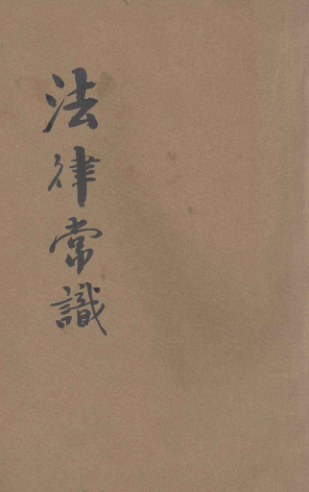 法律常識